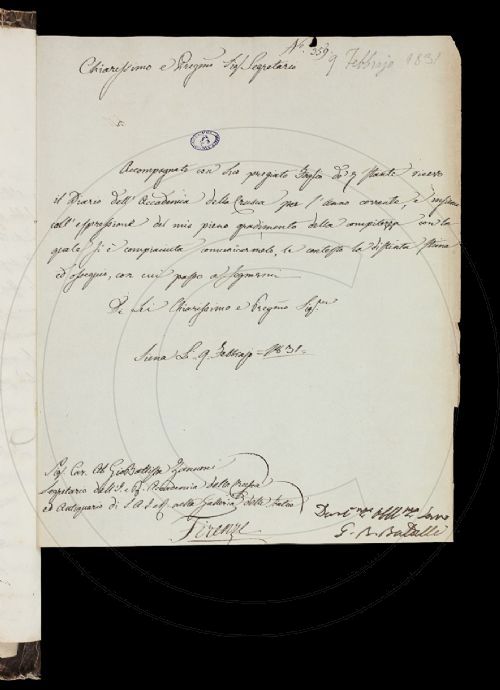 N.° 359
9 Febbrajo 1831
Chiarissimo e Pregmo Sigr Segretario
Accompagnato con Suo pregiato foglio de 7 stante ricevo
il Diario dell'Accademia della Crusca per l'anno corrente, e
coll'espressione del mio pieno gradimento della compitezza con la
quale si è compiaciuta comunicarmelo, le contesto la distinta stima
ed ossequio, con cui passo a segnarmi
Di Lei Chiarissimo e Pregmo Sigre
Siena Li 9 Febbrajo 1831
Sigr Cav. Ab. Gio Battista Zannoni
Segretario dell'I. e R. Accademia della Crusca
ed Antiquario di S.A.I. e R. nella Galleria delle Statue
Firenze
Devmo Obblmo Servo
G. B.